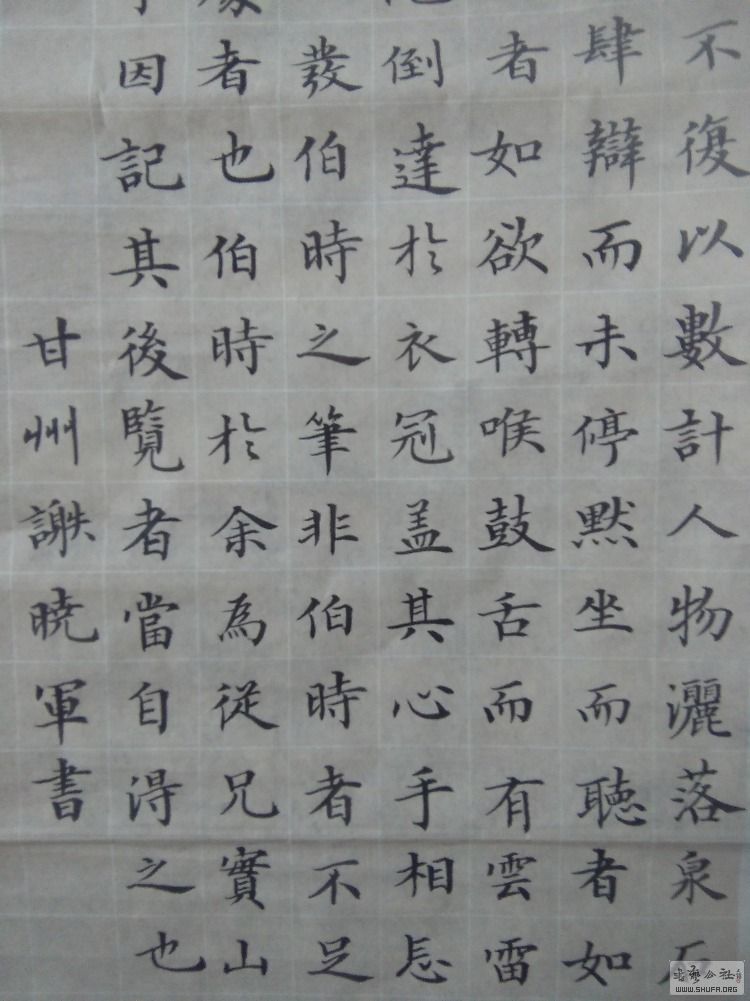 不復以數計人物灑落泉石
肆辯而未停默坐而聴者如
者如欲轉喉鼓舌而有雲雷
倒達於衣冠盖其心手相忘
發伯時之筆非伯時者不足
者也伯時於余為從兄實山
因記其後覽者當自得之也
甘州謝暁軍書
书艺公社
WWW.SHUFA.ORG